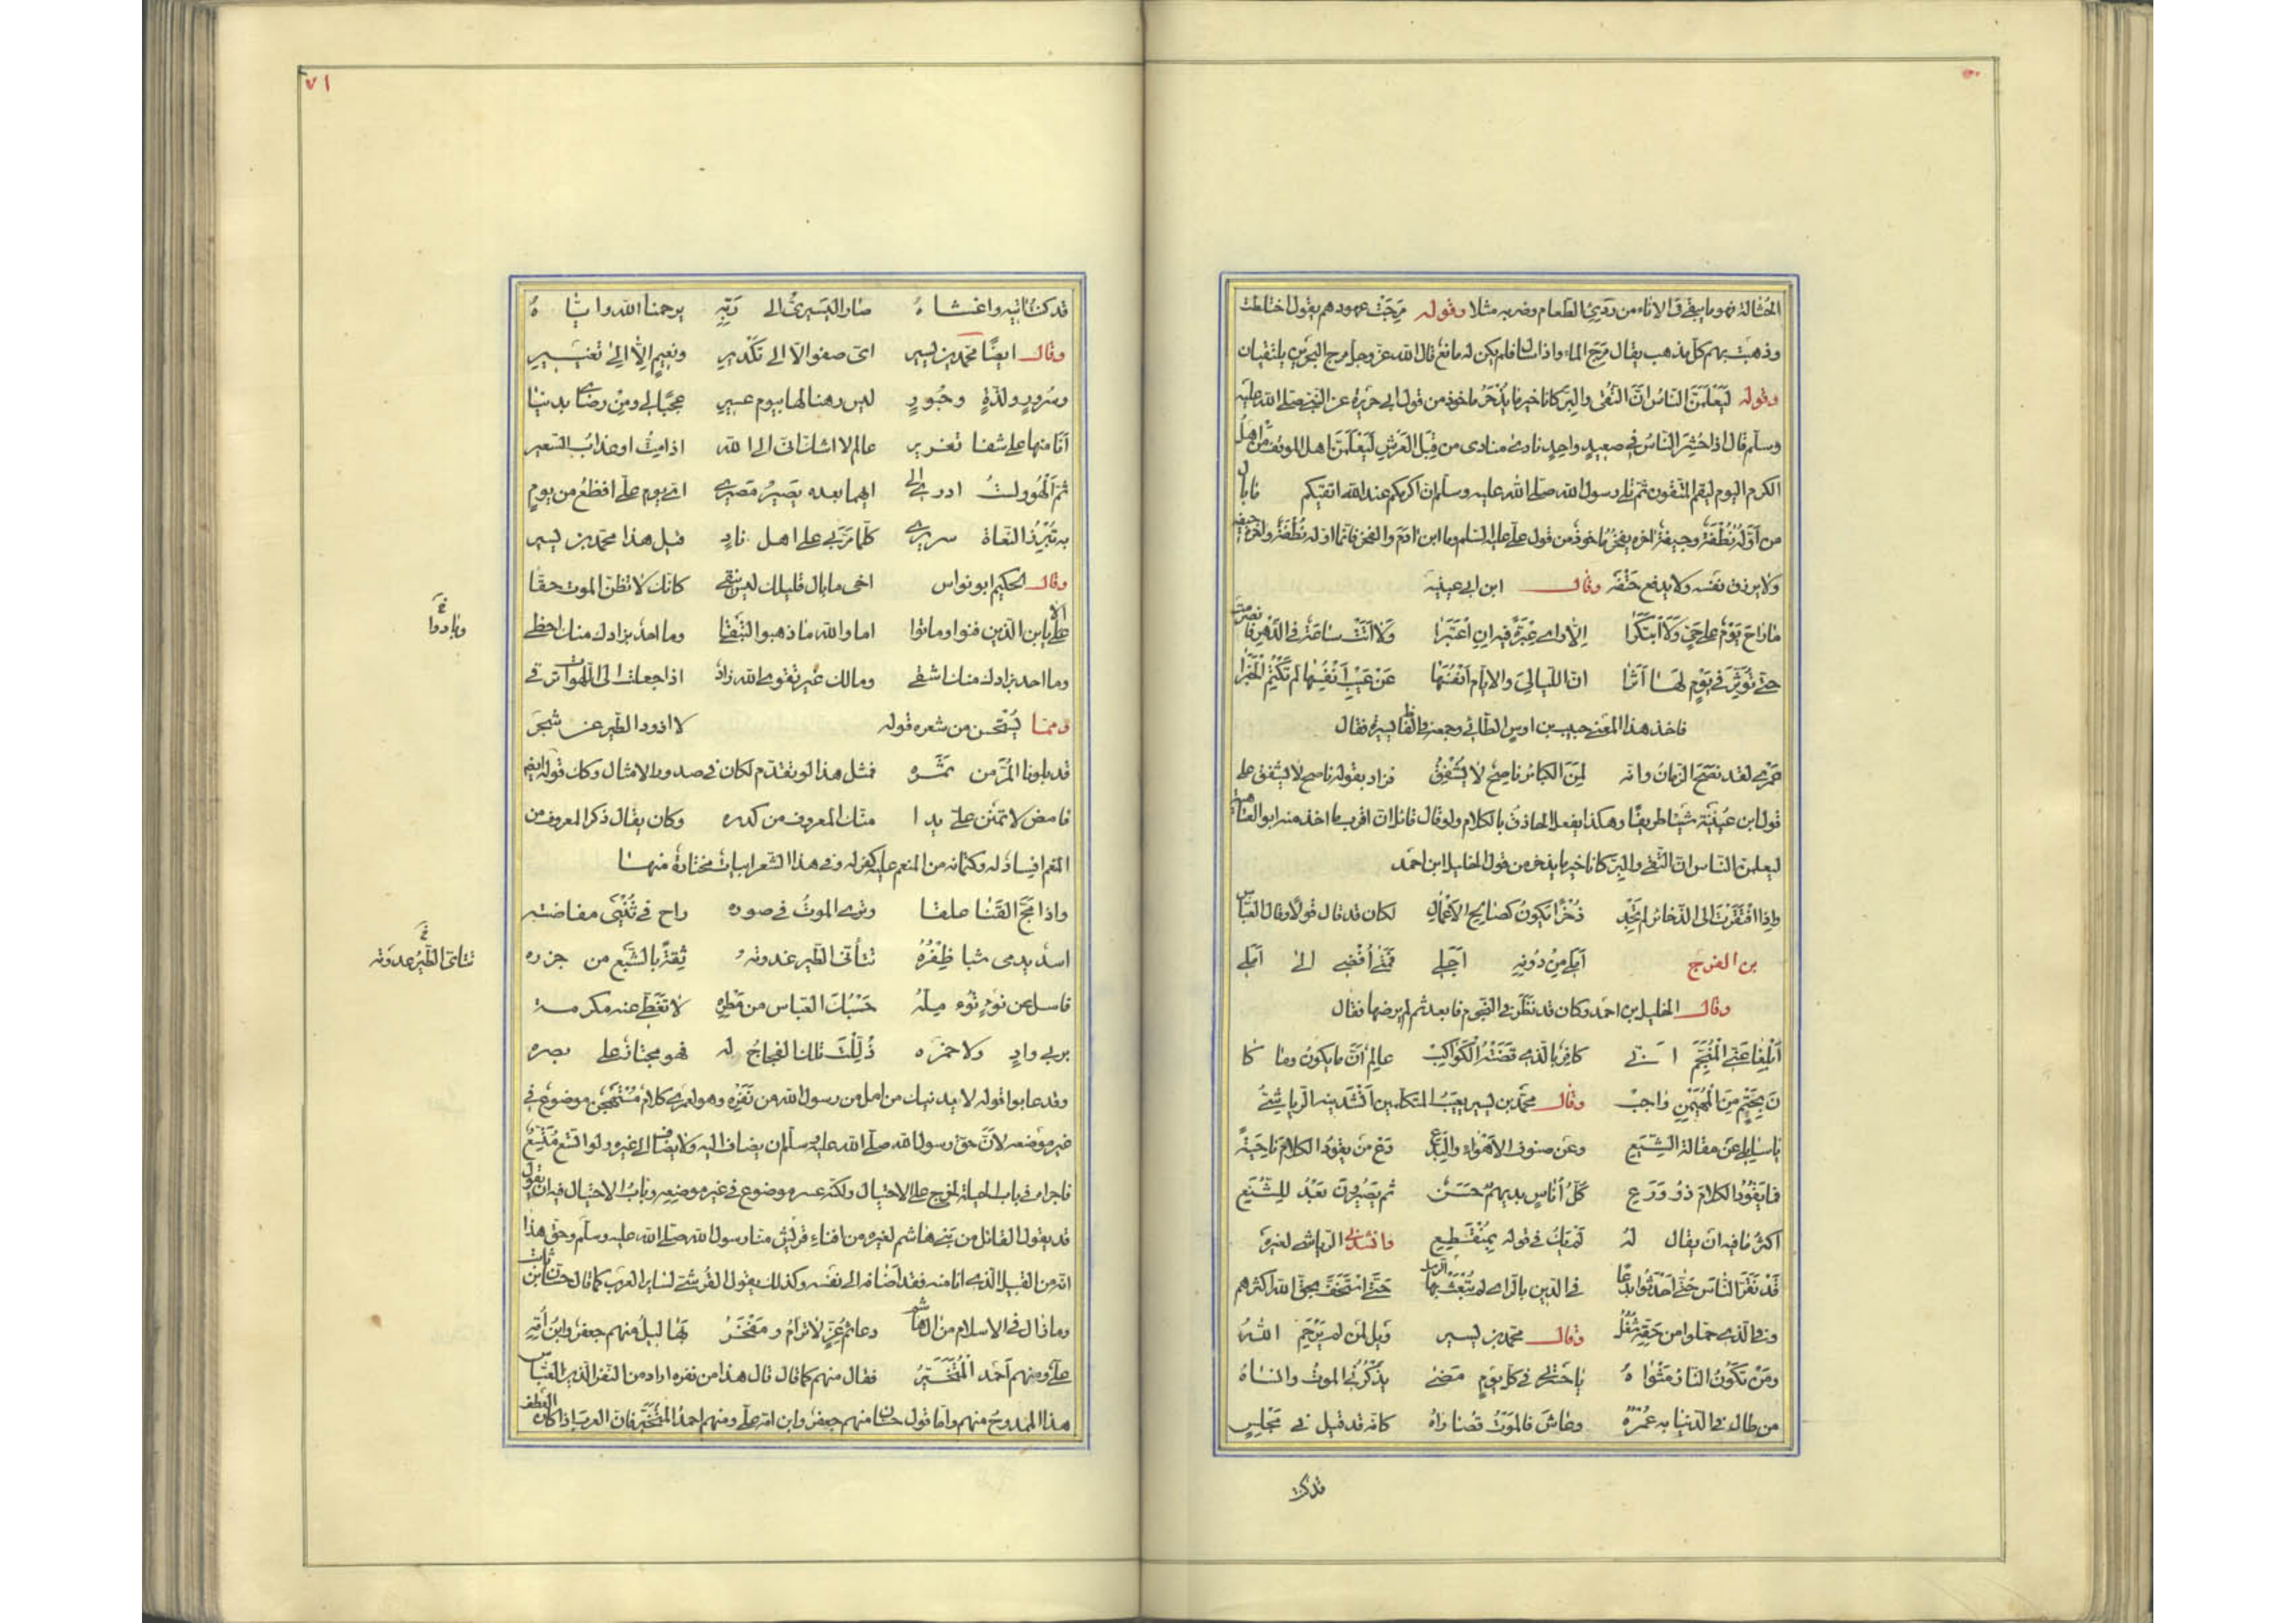 الحثالة فهو ما يبقى في الاناء من ردىء الطعام وضربه مثلا وقوله مرجت عهودهم يقول اختلطت
وذهبت بهم كل مذهب يقال مرج الماء اذا سال فلم يكن له مانع قال الله عز وجل مرج البحرين يلتقيان
وقوله ليعلمن الناس ان التقى والبر كانا خير ما يذخر ماخوذ من قول ابي هريرة عن النبي صلى الله عليه
وسلم قال اذا حشر الناس في صعيد واحد نادى منادى من قبل العرش ليعلمن اهل الموقف من اهل
الكرم اليوم ليقم المتقون ثم تلى رسول الله صلى الله عليه وسلم ان اكرمكم عند الله اتقيكم ما بال
من اوله نطفة وجيفة اخره يفخر ماخوذ من قول علي عليه السلم وما ابن ادم والفخر فانما اوله نطفة واخره جيفة
ولا يرزق نفسه ولا يدفع حتفه وقال ابن ابي عيينة
ما راح يوم على حي ولا ابتكرا الا راى عبرة فيه ان اعتبرا ولا اتت ساعة في الدهر فانصرمت
حتى تؤثر في يوم لها اثرا ان الليالي والايام انفسها عن عيب انفسها لم تكتم الخبرا
فاخذ هذا المعنى حبيب بن اوس الطائي وجمعه في الفاظ يسيرة فقال
عمرى لقد نصح الزمان وانه لمن الكبائر ناصح لا يشفق فزاد بقوله ناصح لا يشفق على
قول ابن عيينة شيئا طريفا وهكذا يفعل الحاذق بالكلام ولو قال قائل ان اقرب ما اخذ منه ابو العتاهية
ليعلمن الناس ان التقى والبر كانا خير ما يذخر من قول الخليل ابن احمد
واذا افتقرت الى الذخائر لم تجد ذخرا يكون كصالح الاعمال لكان قد قال قولا وقال العباس
بن الفرج املي من دونه اجلي فمتى افضى الى املي
وقال الخليل بن احمد وكان قد نظر في النجوم فابعد ثم لم يرضها فقال
ابلغا عني المنجم اني كافر بالذى قضته الكواكب عالم ان ما يكون وما كا
ن بحتم من المهيمن واجب وقال محمد بن يسير يعيب المتكلمين انشدنيه الرياشى
يا سايلي عن مقالة الشيع وعن صنوف الاهواء والبدع دع من يقود الكلام ناحية
فما يقود الكلام ذو ورع كل اناس بديهم حسن ثم يصيرون بعد للشنع
اكثر ما فيه ان يقال له لم يك في قوله بمنقطع وانشدنى الرياشى لغيره
قد نقر الناس حتى احدثوا بدعا في الدين بالراى لم تبعث بها الرسل حتى استخف بحق الله اكثرهم
وفي الذى حملوا من حقه شغل وقال محمد بن يسير ويل لمن لم يرحم الله
ومن تكون النار مثواه يا حسرتى في كل يوم مضى يذكرني الموت وانساه
من طال في الدنيا به عمره وعاش فالموت قصاراه كانه قد قيل في مجلس
قد كنت
٧١
قد كنت اتيه واغشاه صار اليسيرى الى ربه يرحمنا الله واياه
وقال ايضا محمد بن يسير اى صفو الا الى تكدير ونعيم الا الى تغيير
وسرور ولذة وحبور ليس رهنا لها بيوم عسير عجبا لي ومن رضاى بدنيا
انا منها على شفا تغرير عالم لا اشك اني الى الله اذا مت او عذاب السعير
ثم الهو ولست ادرى الى ايهما بعده يصير مصيرى اى يوم على افظع من يوم
به تبرز النعاة سريرى كلما مر بي على اهل ناد قيل هذا محمد بن يسير
وقال الحكيم ابو نواس اخى ما بال قلبك ليس ينقى كانك لا تظن الموت حقا
الا يا بن الذين فنوا وماتوا اما والله ما ذهبوا لتبقى وما احد بزادك منك احظى
وما احد بزادك منك اشقى ومالك غير تقوى الله زاد اذا جعلت الى اللهوات ترقى
ومما يستحسن من شعره قوله لا اذود الطير عن شجر
قد بلونا المر من ثمره فمثل هذا لو تقدم لكان في صدور الامثال وكذا قوله ايضا
فامض لا تمنن على يدا منك المعروف من كدره وكان يقال ذكر المعروف من
المنعم افساد له وكتمانه من المنعم عليه كفر له وفي هذا الشعر ابيات مختارة منها
واذا مج القنا علقا وترى الموت في صوره راح في ثنيى مفاضته
اسد يدمى شبا ظفره تتأتى الطير غدوته ثقة بالشبع من جزره
فاسل عن نوء تؤمله حسبك العباس من مطره لا تغطى عنه مكرمة
بربي واد ولا خمره ذللت تلك الفجاج له فهو مجتاز على بصره
وقد عابوا قوله لا يدنيك من امل من رسول الله من نفره وهو لعمرى كلام مستهجن موضوع في
غير موضعه لان حق رسول الله صلى الله عليه وسلم ان يضاف اليه ولا يضاف الى غيره ولو اتسع متسع
فاجراه في باب الحيلة لخرج على الاحتيال ولكنه عسر موضوع في غير موضعه وباب الاحتيال فيه ان يقول
قد يقول القائل من بني هاشم لغيره من افناء قريش منا رسول الله صلى الله عليه وسلم وحق هذا
انه من القبيل الذى انا منه فقد اضافه الى نفسه وكذلك يقول القرشى لساير العرب كما قال حسان بن ثابت
وما زال في الاسلام من ال هاشم دعائم عز لا ترام ومفخر بها ليل منهم جعفر وابن امه
على ومنهم احمد المتخير فقال منهم كما قال قال هذا من نفره اراد من النفر الذى العباس
هذا الممدوح منهم واما قول حسان منهم جعفر وابن امه على ومنهم احمد المتخير فان العرب اذا كان العطف
وبادوا
تتاتى الطير غدوته